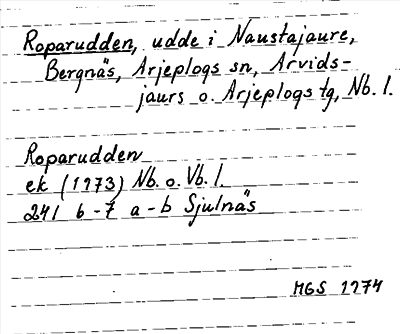 Roparudden, udde i Naustajaure,
Bergnäs, Arjeplogs sn, Arvids-
jaurs o. Arjeplogs tg, Nb. l.
Roparudden
ek (1973) Nb. o. Vb. l.
241 6-7 a-b Sjulnäs
MGS 1974